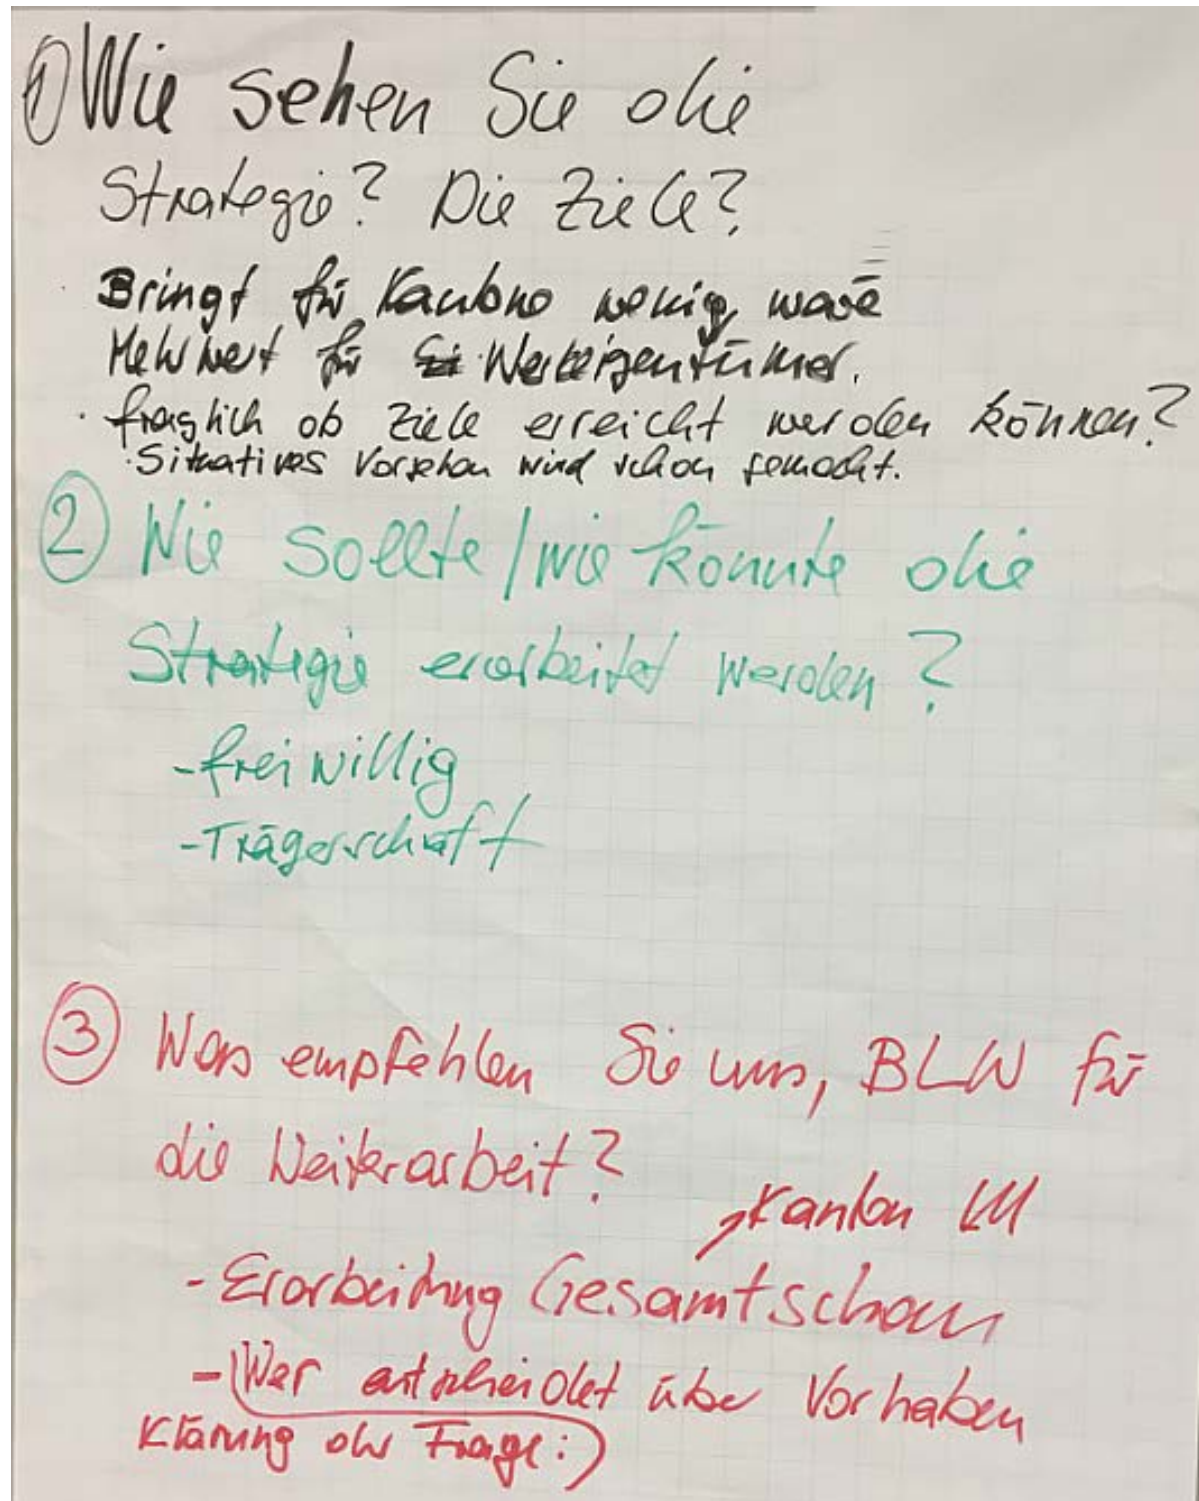 ① Wie sehen Sie die
Strategie? Die Ziele?
· Bringt für Kantone wenig, wäre
Mehrwert für Werkeigentümer.
· fraglich ob Ziele erreicht werden können?
· Situatives Vorgehen wird schon gemacht.
② Wie sollte/wie könnte die
Strategie erarbeitet werden?
- freiwillig
- Trägerschaft
③ Was empfehlen Sie uns, BLW für
die Weiterarbeit?
Kanton
- Erarbeitung Gesamtschau
- Wer entscheidet über Vorhaben
Klärung der Frage:)